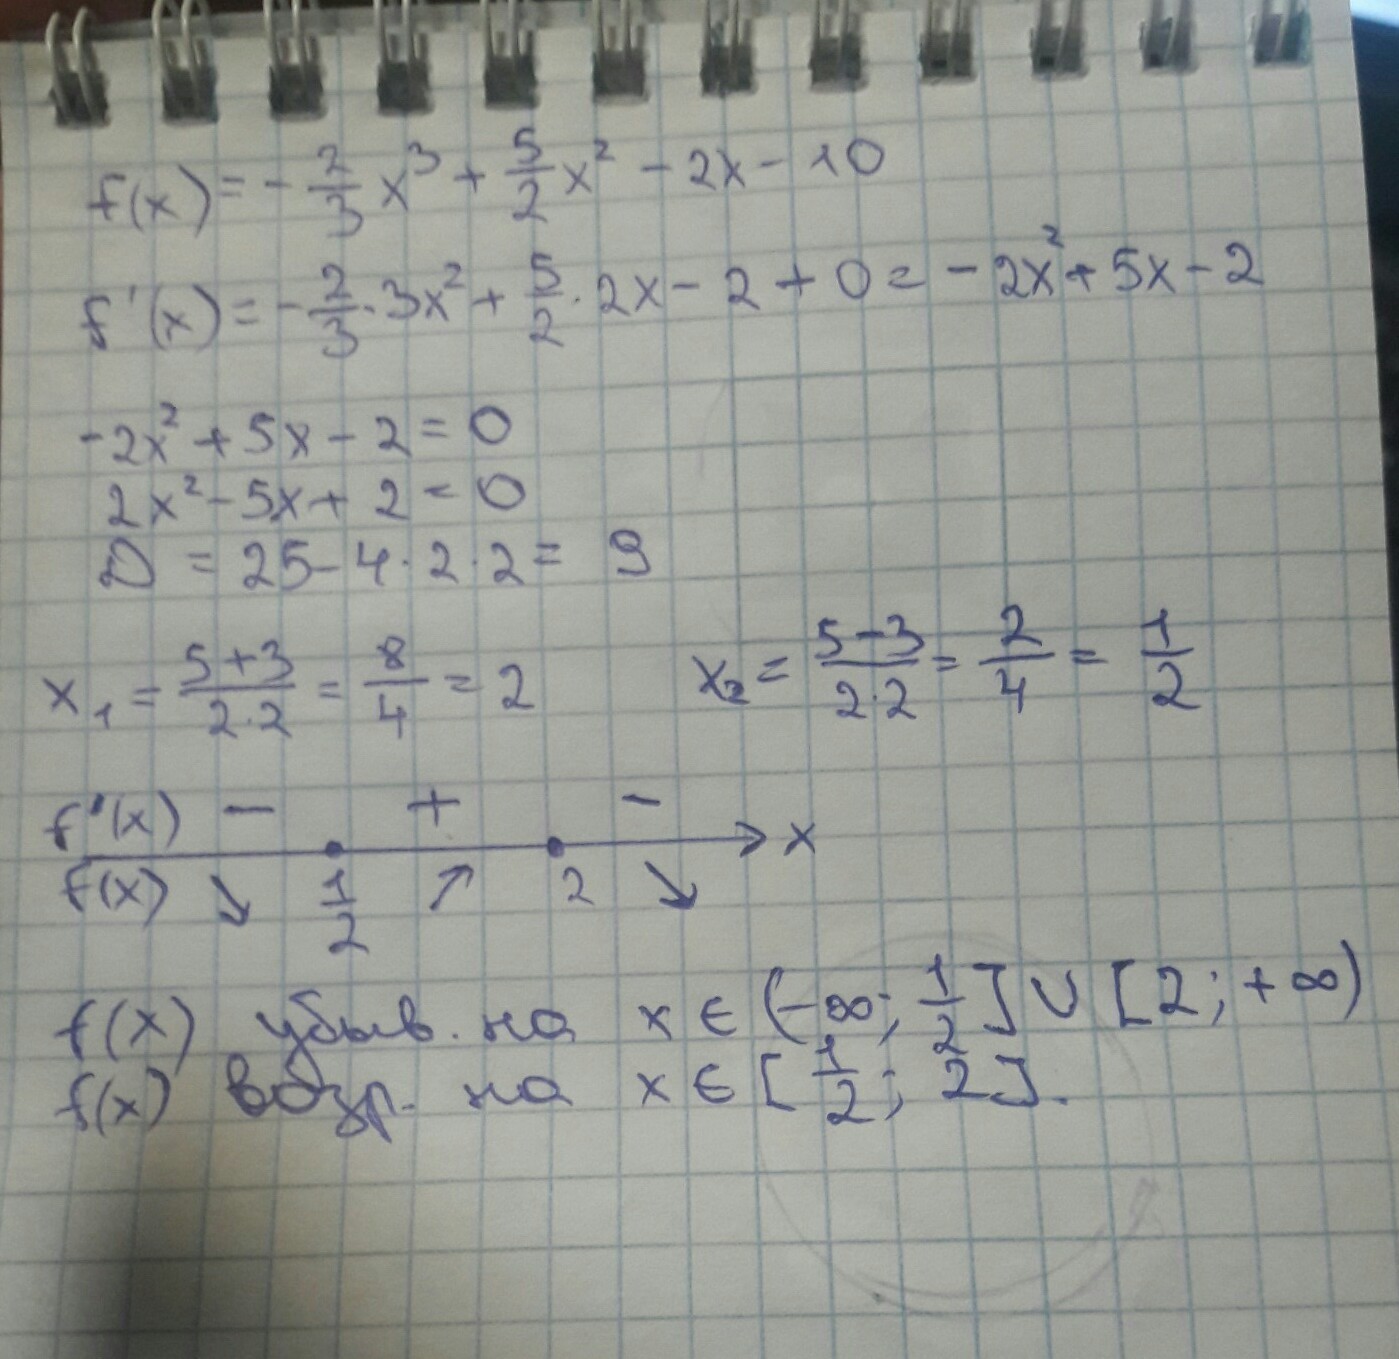 f(x) = - 2/3 x³ + 5/2 x² - 2x - 10
f'(x) = - 2/3 · 3x² + 5/2 · 2x - 2 + 0 = - 2x² + 5x - 2
-2x² + 5x - 2 = 0
2x² - 5x + 2 = 0
D = 25 - 4 · 2 · 2 = 9
x₁ = (5+3)/(2·2) = 8/4 = 2 x₂ = (5-3)/(2·2) = 2/4 = 1/2
f'(x) - + - x
f(x) ↘ 1/2 ↗ 2 ↘
f(x) убыв. на x ∈ (-∞; 1/2] ∪ [2; +∞)
f(x) возр. на x ∈ [1/2; 2].